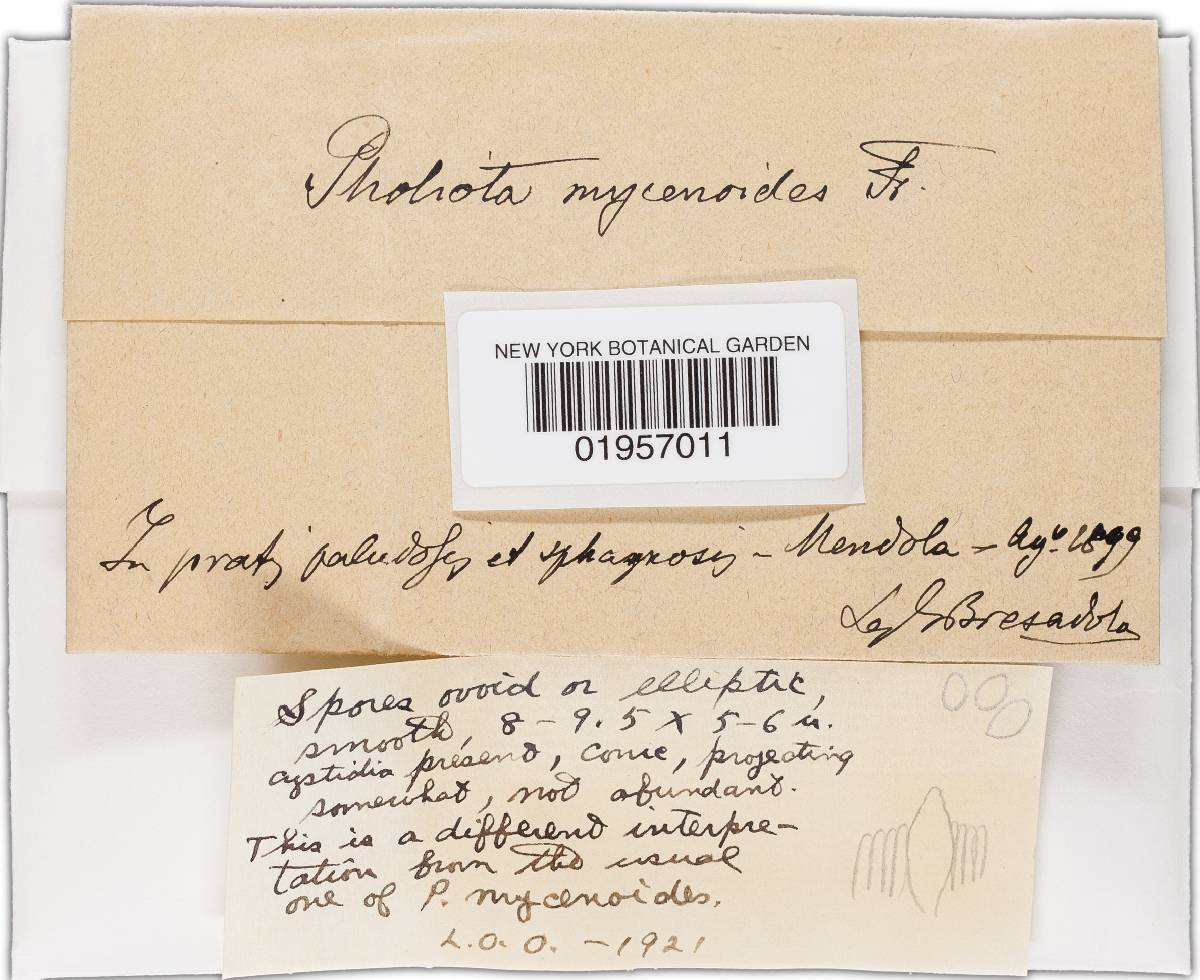 Pholiota mycenoides Fr.
NEW YORK BOTANICAL GARDEN
01957011
In pratis paludosis et sphagnosis – Mendola – Agº 1899
Leg G Bresadola
Spores ovoid or elliptic,
smooth, 8 – 9.5 X 5–6 µ.
cystidia present, conic, projecting
somewhat, not abundant.
This is a different interpre–
tation from the usual
one of P. mycenoides.
L.O.O. – 1921